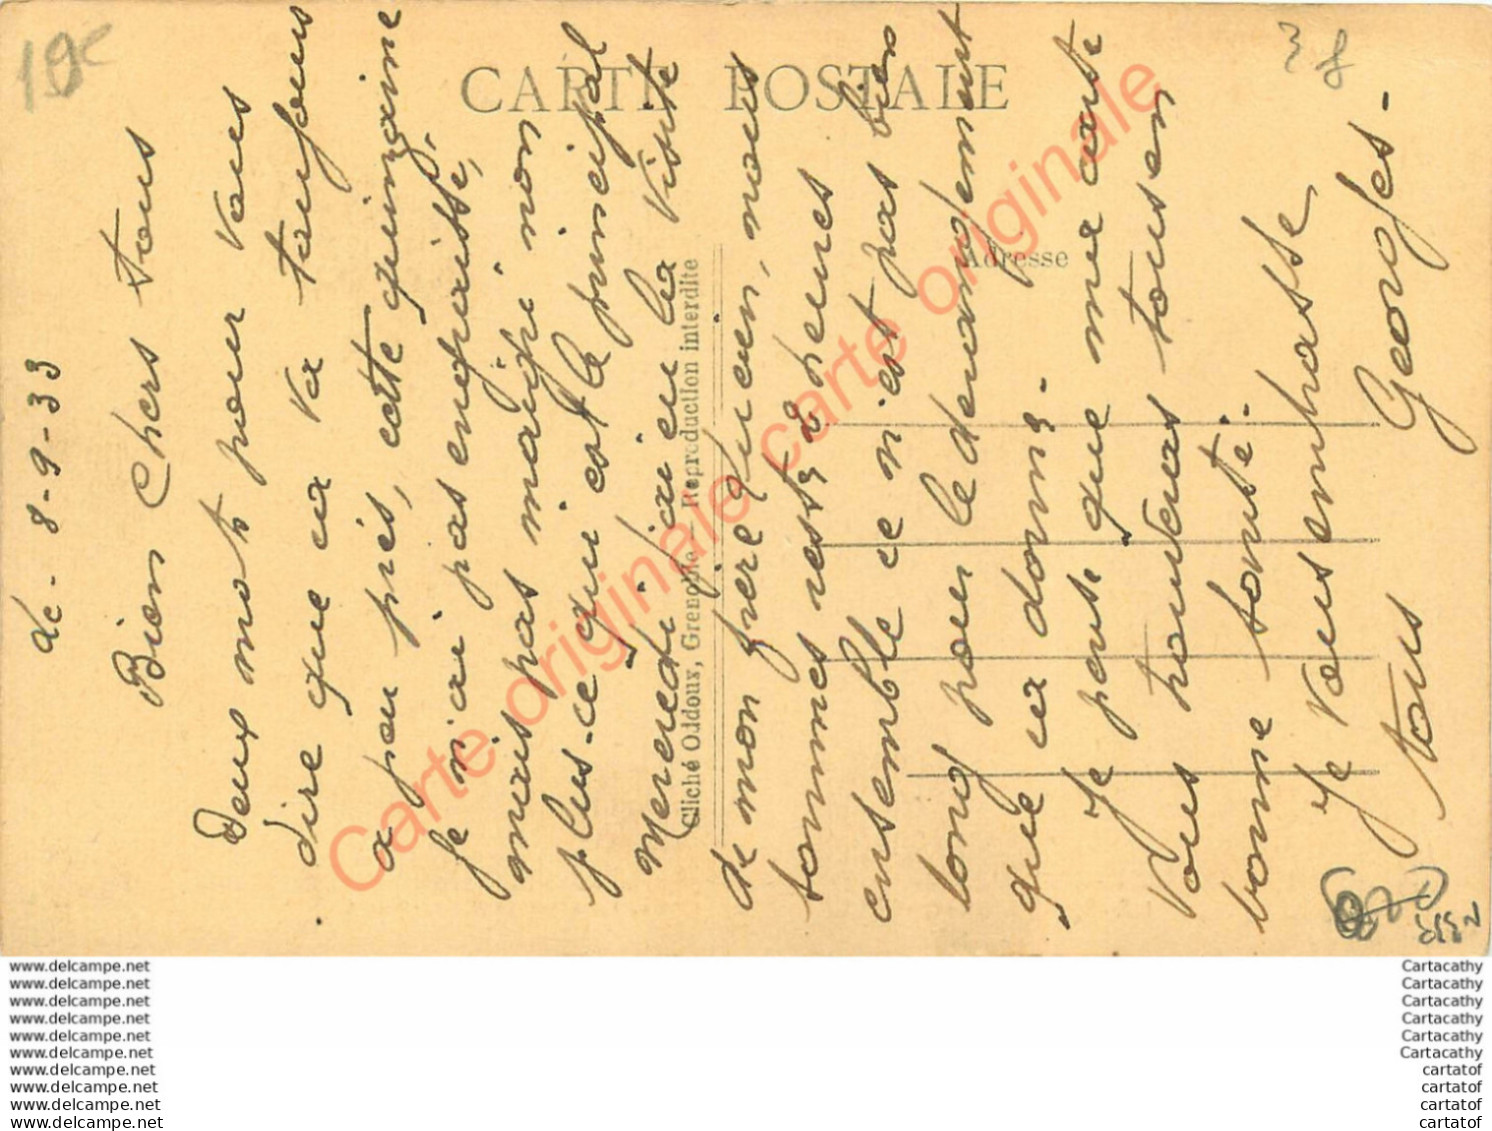 CARTE POSTALE
Adresse
Cliché Oddoux, Grenoble — Reproduction interdite
Le - 8-9-33
Bien Chers tous
Deux mots pour vous
dire que ca va toujours
a peu près, cette quinzaine
je n'ai pas engraissé,
mais pas maigri non
plus - ce qui est le principal
Mercredi j'ai eu la visite
de mon frere, nous
sommes resté 2 heures
ensemble ce n'est pas bien
long pour le
que ca donne -
Je pense que ma carte
vous trouveras tous en
bonne santé.
Je vous embrasse
tous Georges -
19c
38
Carte originale carte originale carte originale
www.delcampe.net
www.delcampe.net
www.delcampe.net
www.delcampe.net
www.delcampe.net
www.delcampe.net
www.delcampe.net
www.delcampe.net
www.delcampe.net
www.delcampe.net
Cartacathy
Cartacathy
Cartacathy
Cartacathy
Cartacathy
Cartacathy
cartatof
cartatof
cartatof
cartatof